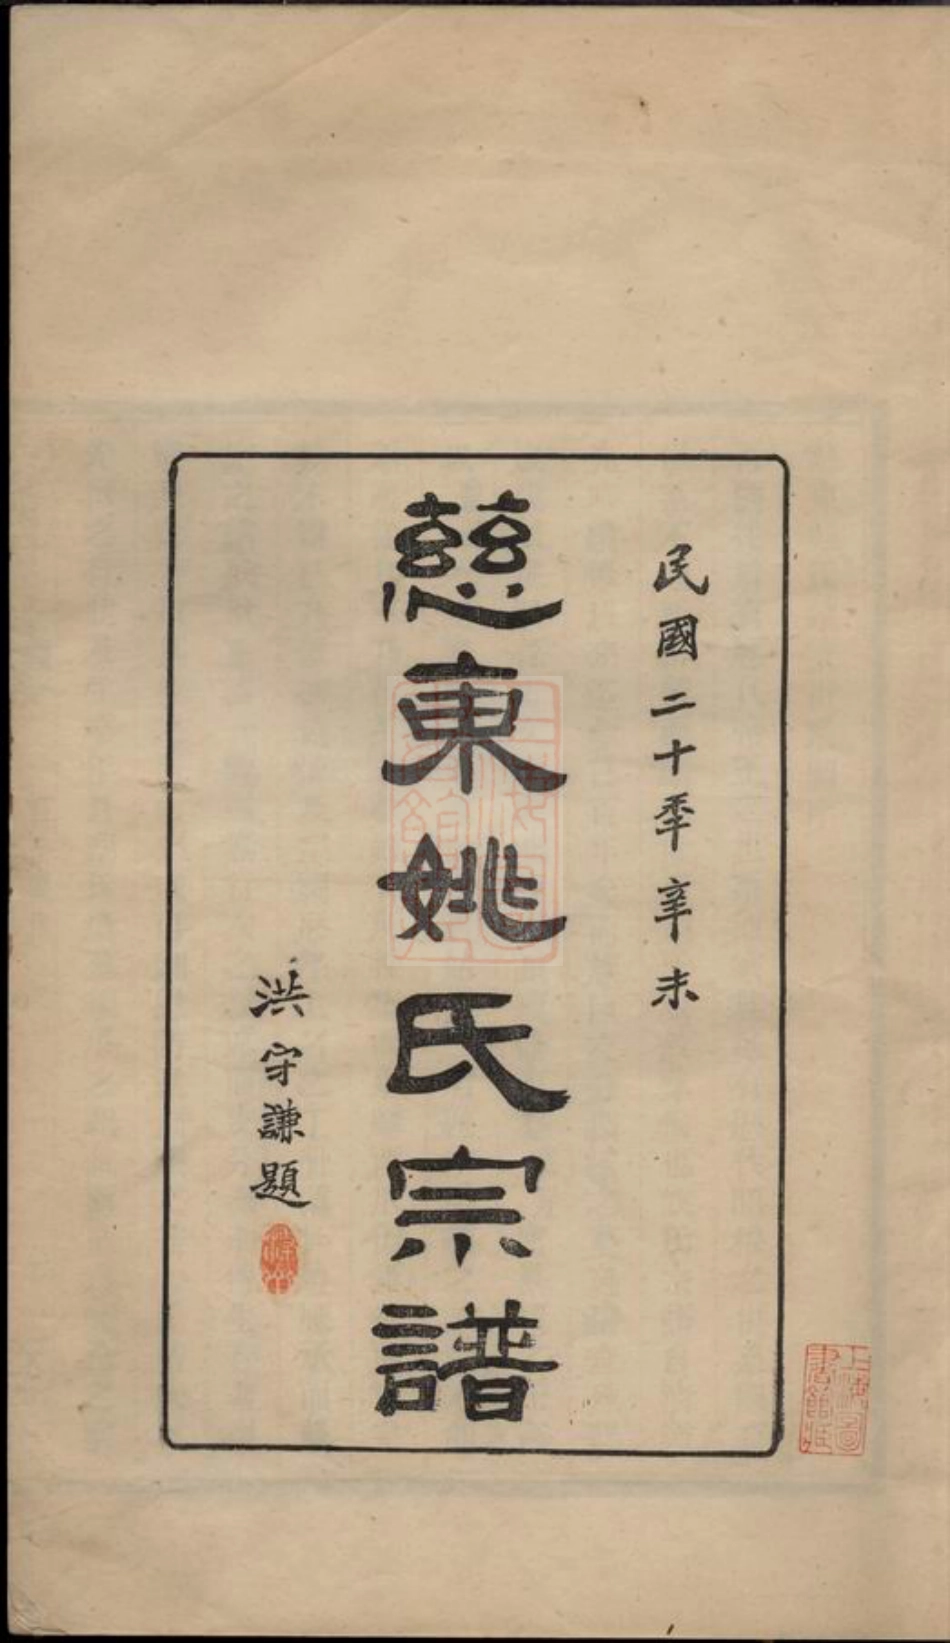 民國二十秊辛未
慈東姚氏宗譜
洪守謙題
上海圖書館藏